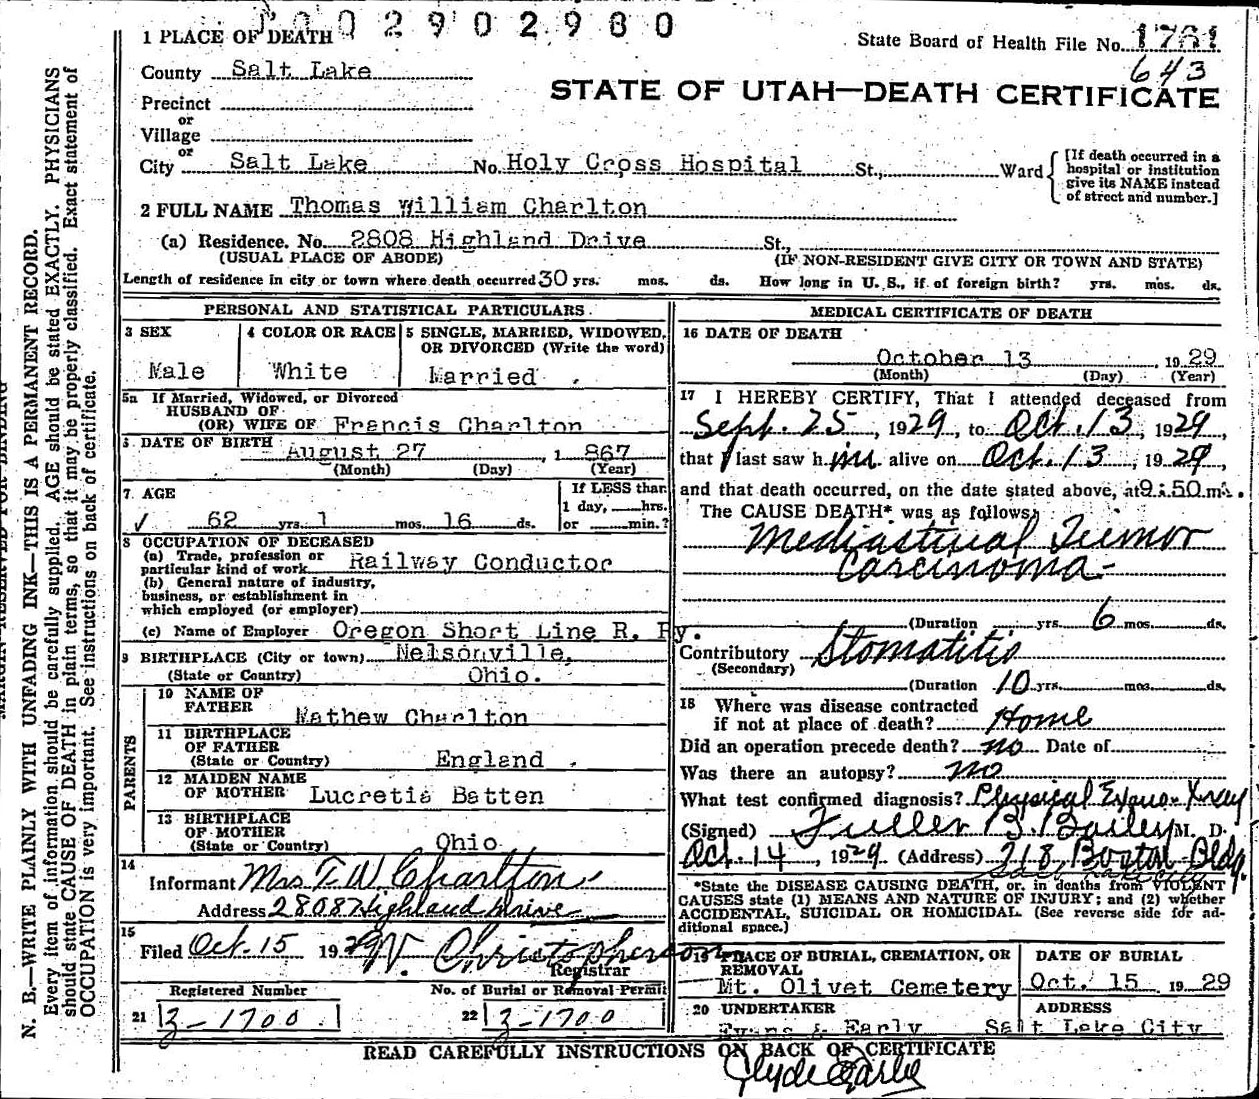 0 0 2 9 0 2 9 8 0
1 PLACE OF DEATH
State Board of Health File No. 1761
County Salt Lake
643
STATE OF UTAH—DEATH CERTIFICATE
Precinct
or
Village
or
City Salt Lake No. Holy Cross Hospital St., Ward
[If death occurred in a hospital or institution give its NAME instead of street and number.]
2 FULL NAME Thomas William Charlton
(a) Residence. No. 2808 Highland Drive St.,
(USUAL PLACE OF ABODE) (IF NON-RESIDENT GIVE CITY OR TOWN AND STATE)
Length of residence in city or town where death occurred 30 yrs. mos. ds. How long in U. S., if of foreign birth? yrs. mos. ds.
PERSONAL AND STATISTICAL PARTICULARS
3 SEX
Male
4 COLOR OR RACE
White
5 SINGLE, MARRIED, WIDOWED,
OR DIVORCED (Write the word)
Married
5a If Married, Widowed, or Divorced
HUSBAND OF
(OR) WIFE OF Francis Charlton
6 DATE OF BIRTH
August 27, 1867
(Month) (Day) (Year)
7 AGE
62 yrs. 1 mos. 16 ds.
If LESS than
1 day, hrs.
or min.?
8 OCCUPATION OF DECEASED
(a) Trade, profession or
particular kind of work Railway Conductor
(b) General nature of industry,
business, or establishment in
which employed (or employer)
(c) Name of Employer Oregon Short Line R. Ry.
9 BIRTHPLACE (City or town) Nelsonville,
(State or Country) Ohio.
PARENTS
10 NAME OF
FATHER
Mathew Charlton
11 BIRTHPLACE
OF FATHER
(State or Country) England
12 MAIDEN NAME
OF MOTHER Lucretia Batten
13 BIRTHPLACE
OF MOTHER
(State or Country) Ohio
14
Informant Mrs T. W. Charlton
Address 2808 Highland Drive
15
Filed Oct. 15 1929 W. Christopherson
Registrar
Registered Number
21 Z-1700
No. of Burial or Removal Permit
22 Z-1700
MEDICAL CERTIFICATE OF DEATH
16 DATE OF DEATH
October 13, 1929
(Month) (Day) (Year)
17 I HEREBY CERTIFY, That I attended deceased from
Sept. 25, 1929, to Oct. 13, 1929,
that I last saw him alive on Oct. 13, 1929,
and that death occurred, on the date stated above, at 9:50 m.
The CAUSE DEATH* was as follows:
Mediastinal Tumor
Carcinoma-
(Duration yrs. 6 mos. ds.
Contributory Stomatitis
(Secondary)
(Duration 10 yrs. mos. ds.
18 Where was disease contracted
if not at place of death? Home
Did an operation precede death? no Date of
Was there an autopsy? no
What test confirmed diagnosis? Physical Exam. Xray
(Signed) Fuller B. Bailey M. D.
Oct. 14, 1929 (Address) 218 Boston Bldg.
Salt Lake City
*State the DISEASE CAUSING DEATH, or, in deaths from VIOLENT
CAUSES state (1) MEANS AND NATURE OF INJURY; and (2) whether
ACCIDENTAL, SUICIDAL OR HOMICIDAL. (See reverse side for ad-
ditional space.)
19 PLACE OF BURIAL, CREMATION, OR
REMOVAL
Mt. Olivet Cemetery
DATE OF BURIAL
Oct. 15 1929
20 UNDERTAKER
Evans & Early
ADDRESS
Salt Lake City
READ CAREFULLY INSTRUCTIONS ON BACK OF CERTIFICATE
Clyde Early
MARGIN RESERVED FOR BINDING
N. B.—WRITE PLAINLY WITH UNFADING INK—THIS IS A PERMANENT RECORD.
Every item of information should be carefully supplied. AGE should be stated EXACTLY. PHYSICIANS
should state CAUSE OF DEATH in plain terms, so that it may be properly classified. Exact statement of
OCCUPATION is very important. See instructions on back of certificate.